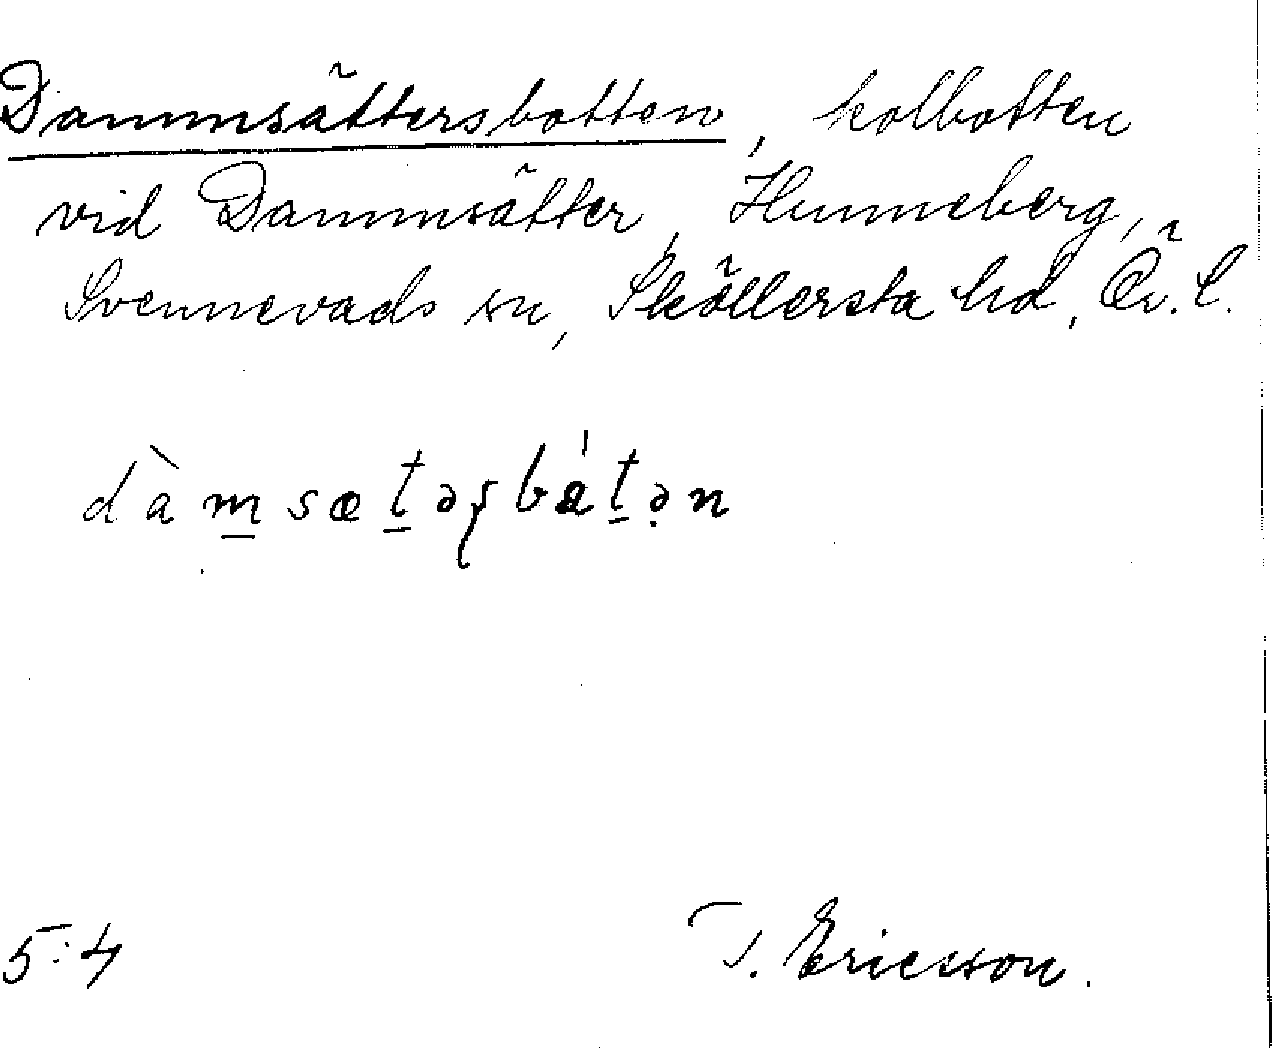 Dammsättersbotten, kolbotten
vid Dammsätter, Hunneberg,
Svennevads sn, Sköllersta hd, Ör. l.
dàm̲sœt̲əʂbát̲ə̣n
5:4 T. Ericsson.